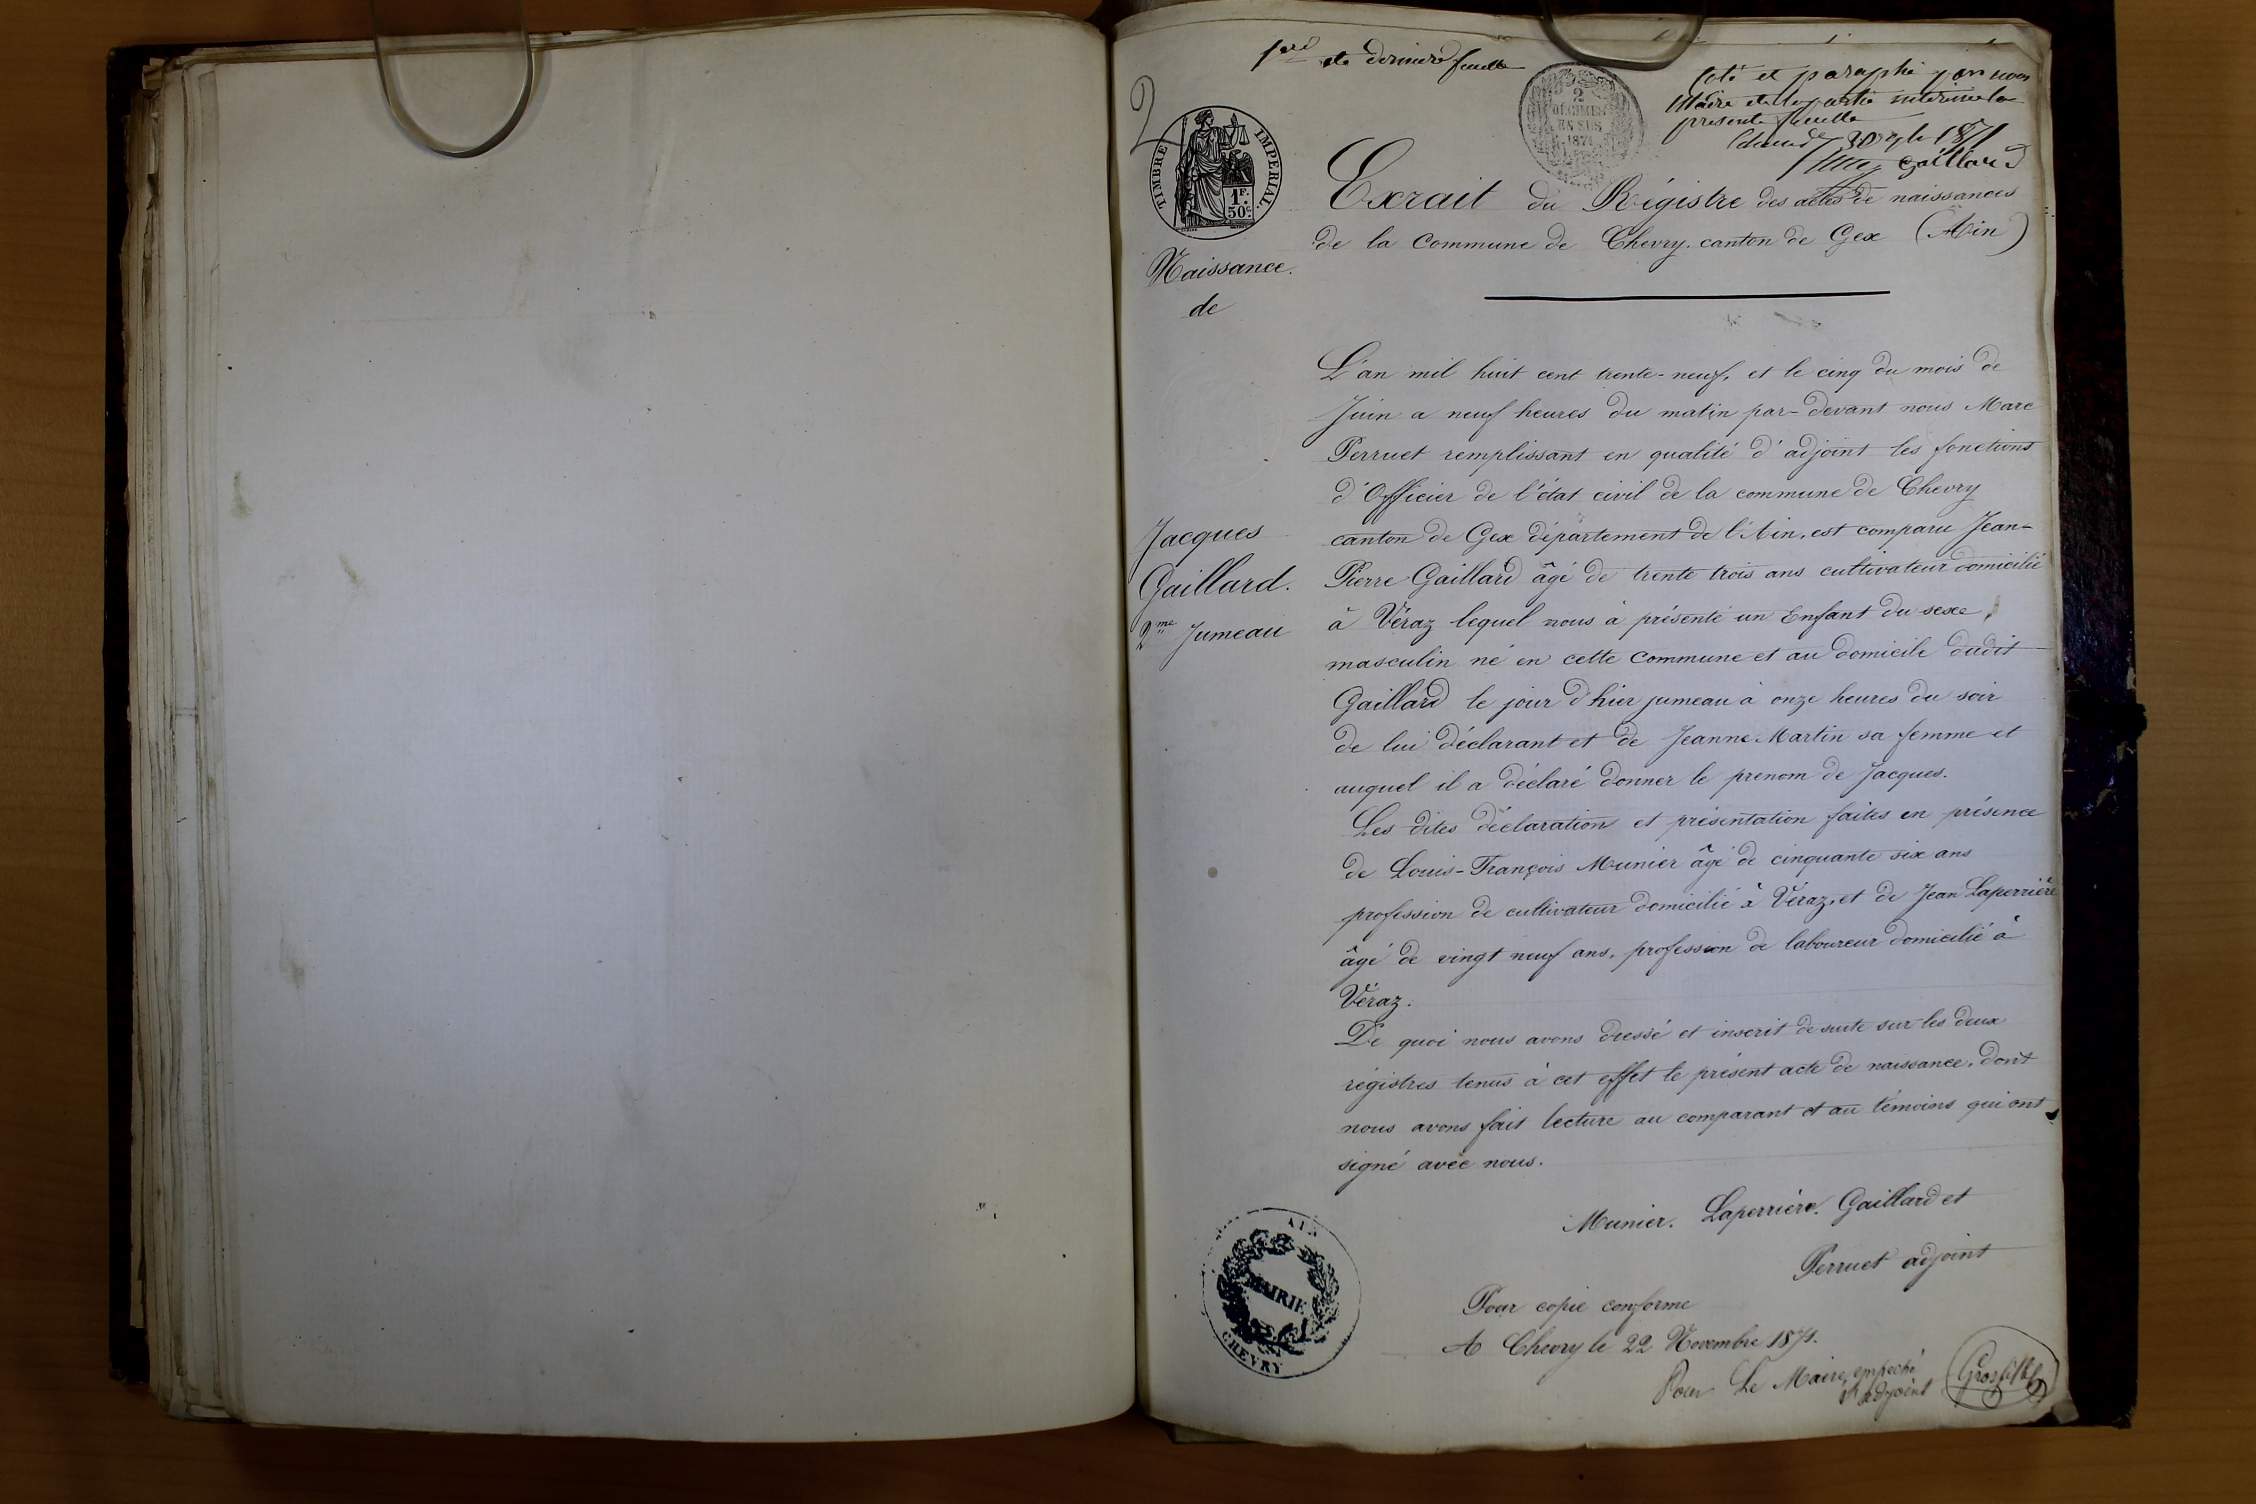 1ère et dernière feuille
Coté et paraphé par nous
Maire
présente feuille
1871
Gaillard
2
TIMBRE IMPERIAL.
1F.
50c.
2
DÉCIMES
EN SUS
1871
Exrait du Régistre des actes de naissances
de la Commune de Chevry. canton de Gex (Ain)
Naissance.
de
Jacques
Gaillard.
2me Jumeau
L'an mil huit cent trente-neuf, et le cinq du mois de
Juin a neuf heures du matin par-devant nous Marc
Perruet remplissant en qualité d'adjoint les fonctions
d'Officier de l'état civil de la commune de Chevry
canton de Gex département de l'Ain, est comparu Jean-
Pierre Gaillard âgé de trente trois ans cultivateur domicilié
à Véraz lequel nous à présenté un Enfant du sexe
masculin né en cette Commune et au domicile dudit
Gaillard le jour d'hier jumeau à onze heures du soir
de lui déclarant et de Jeanne Martin sa femme et
auquel il a déclaré donner le prenom de Jacques.
Les dites déclaration et présentation faites en présence
de Louis-François Munier âgé de cinquante six ans
profession de cultivateur domicilié à Véraz, et de Jean Laperrière
âgé de vingt neuf ans, profession de laboureur domicilié à
Véraz.
De quoi nous avons dressé et inscrit de suite sur les deux
régistres tenus à cet effet le présent acte de naissance, dont
nous avons fait lecture au comparant et au témoins qui ont
signé avec nous.
Munier. Laperrière. Gaillard et
Perruet adjoint
Pour copie conforme
A Chevry le 22 Novembre 1871.
Pour Le Maire, empeché
adjoint
AIN
MAIRIE
CHEVRY